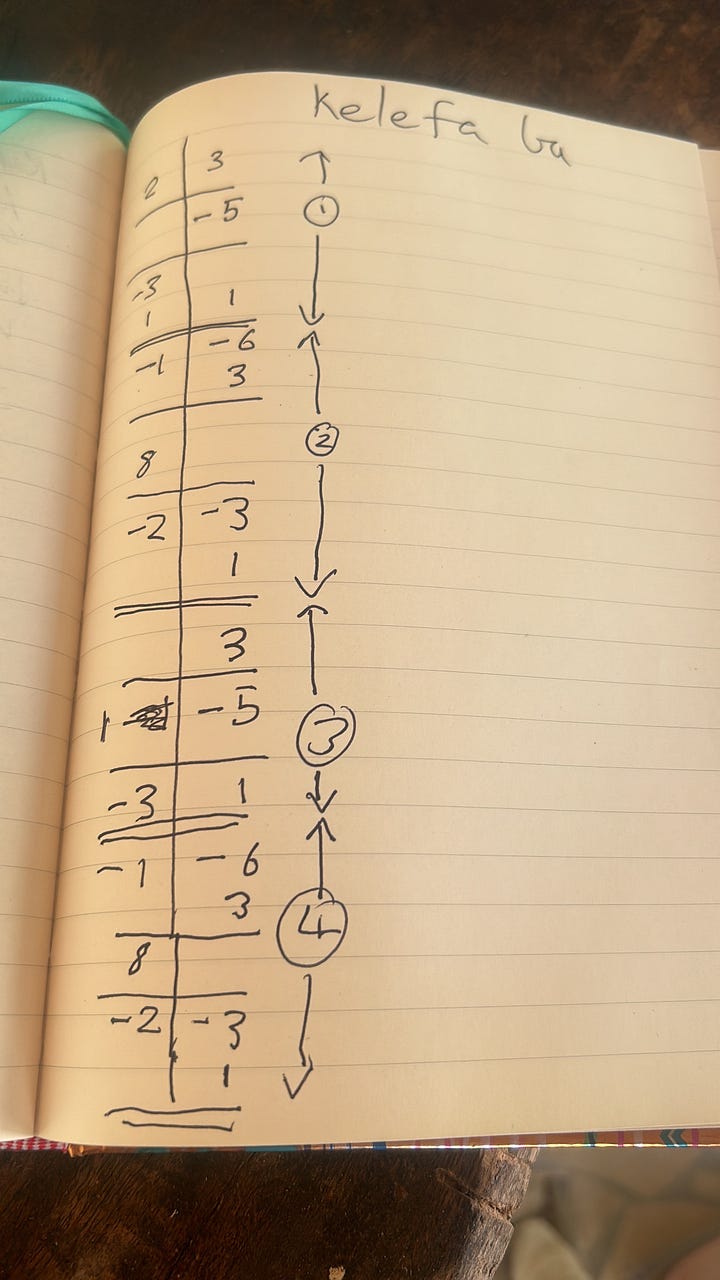 Kelefa ba
2 3
-5
①
-3 1
1
-6
-1 3
②
8
-2 -3
1
3
1 -5
③
-3 1
-1 -6
3
④
8
-2 -3
1